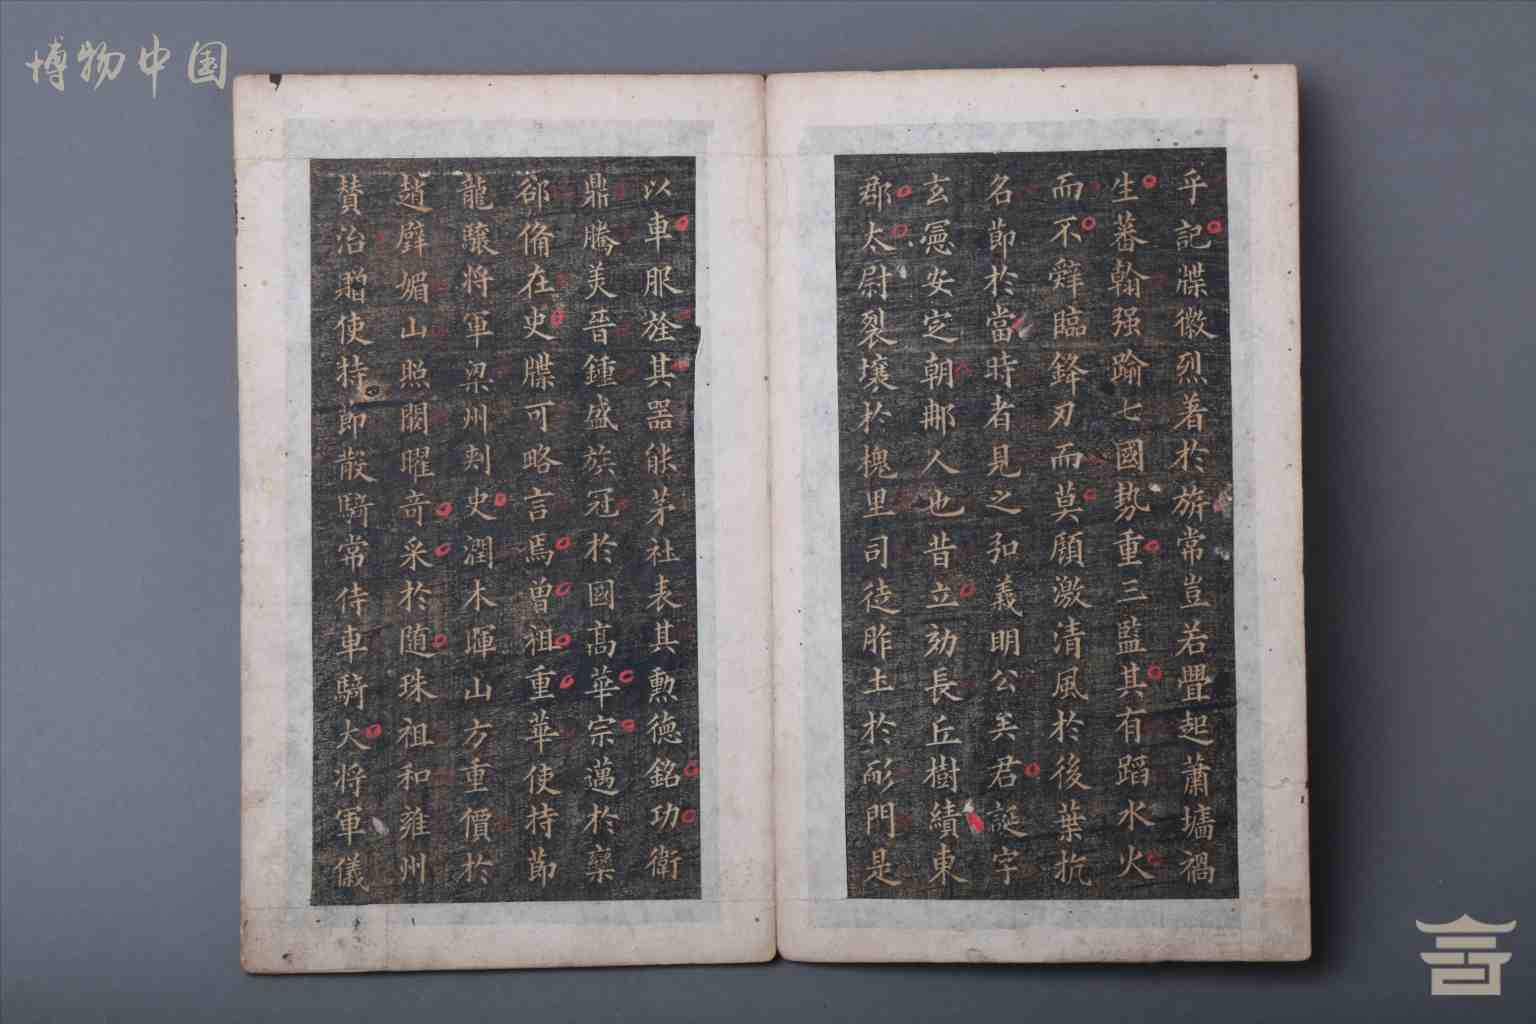 博物中国
乎記牒徽烈著於旂常豈若舋起蕭墻禍
生蕃翰强踰七國勢重三監其有蹈水火
而不辭臨鋒刃而莫顧激清風於後葉抗
名節於當時者見之弘義明公矣君誕字
玄憲安定朝那人也昔立効長丘樹績東
郡太尉裂壤於槐里司徒胙土於耏門是
以車服旌其器能茅社表其勲德銘功衛
鼎騰美晉鍾盛族冠於國高華宗邁於欒
郤俻在史牒可略言焉曾祖重華使持節
龍驤将軍梁州刾史潤木暉山方重價於
趙璧媚山照闕曜竒采於随珠祖和雍州
賛治贈使持節散騎常侍車騎大将軍儀